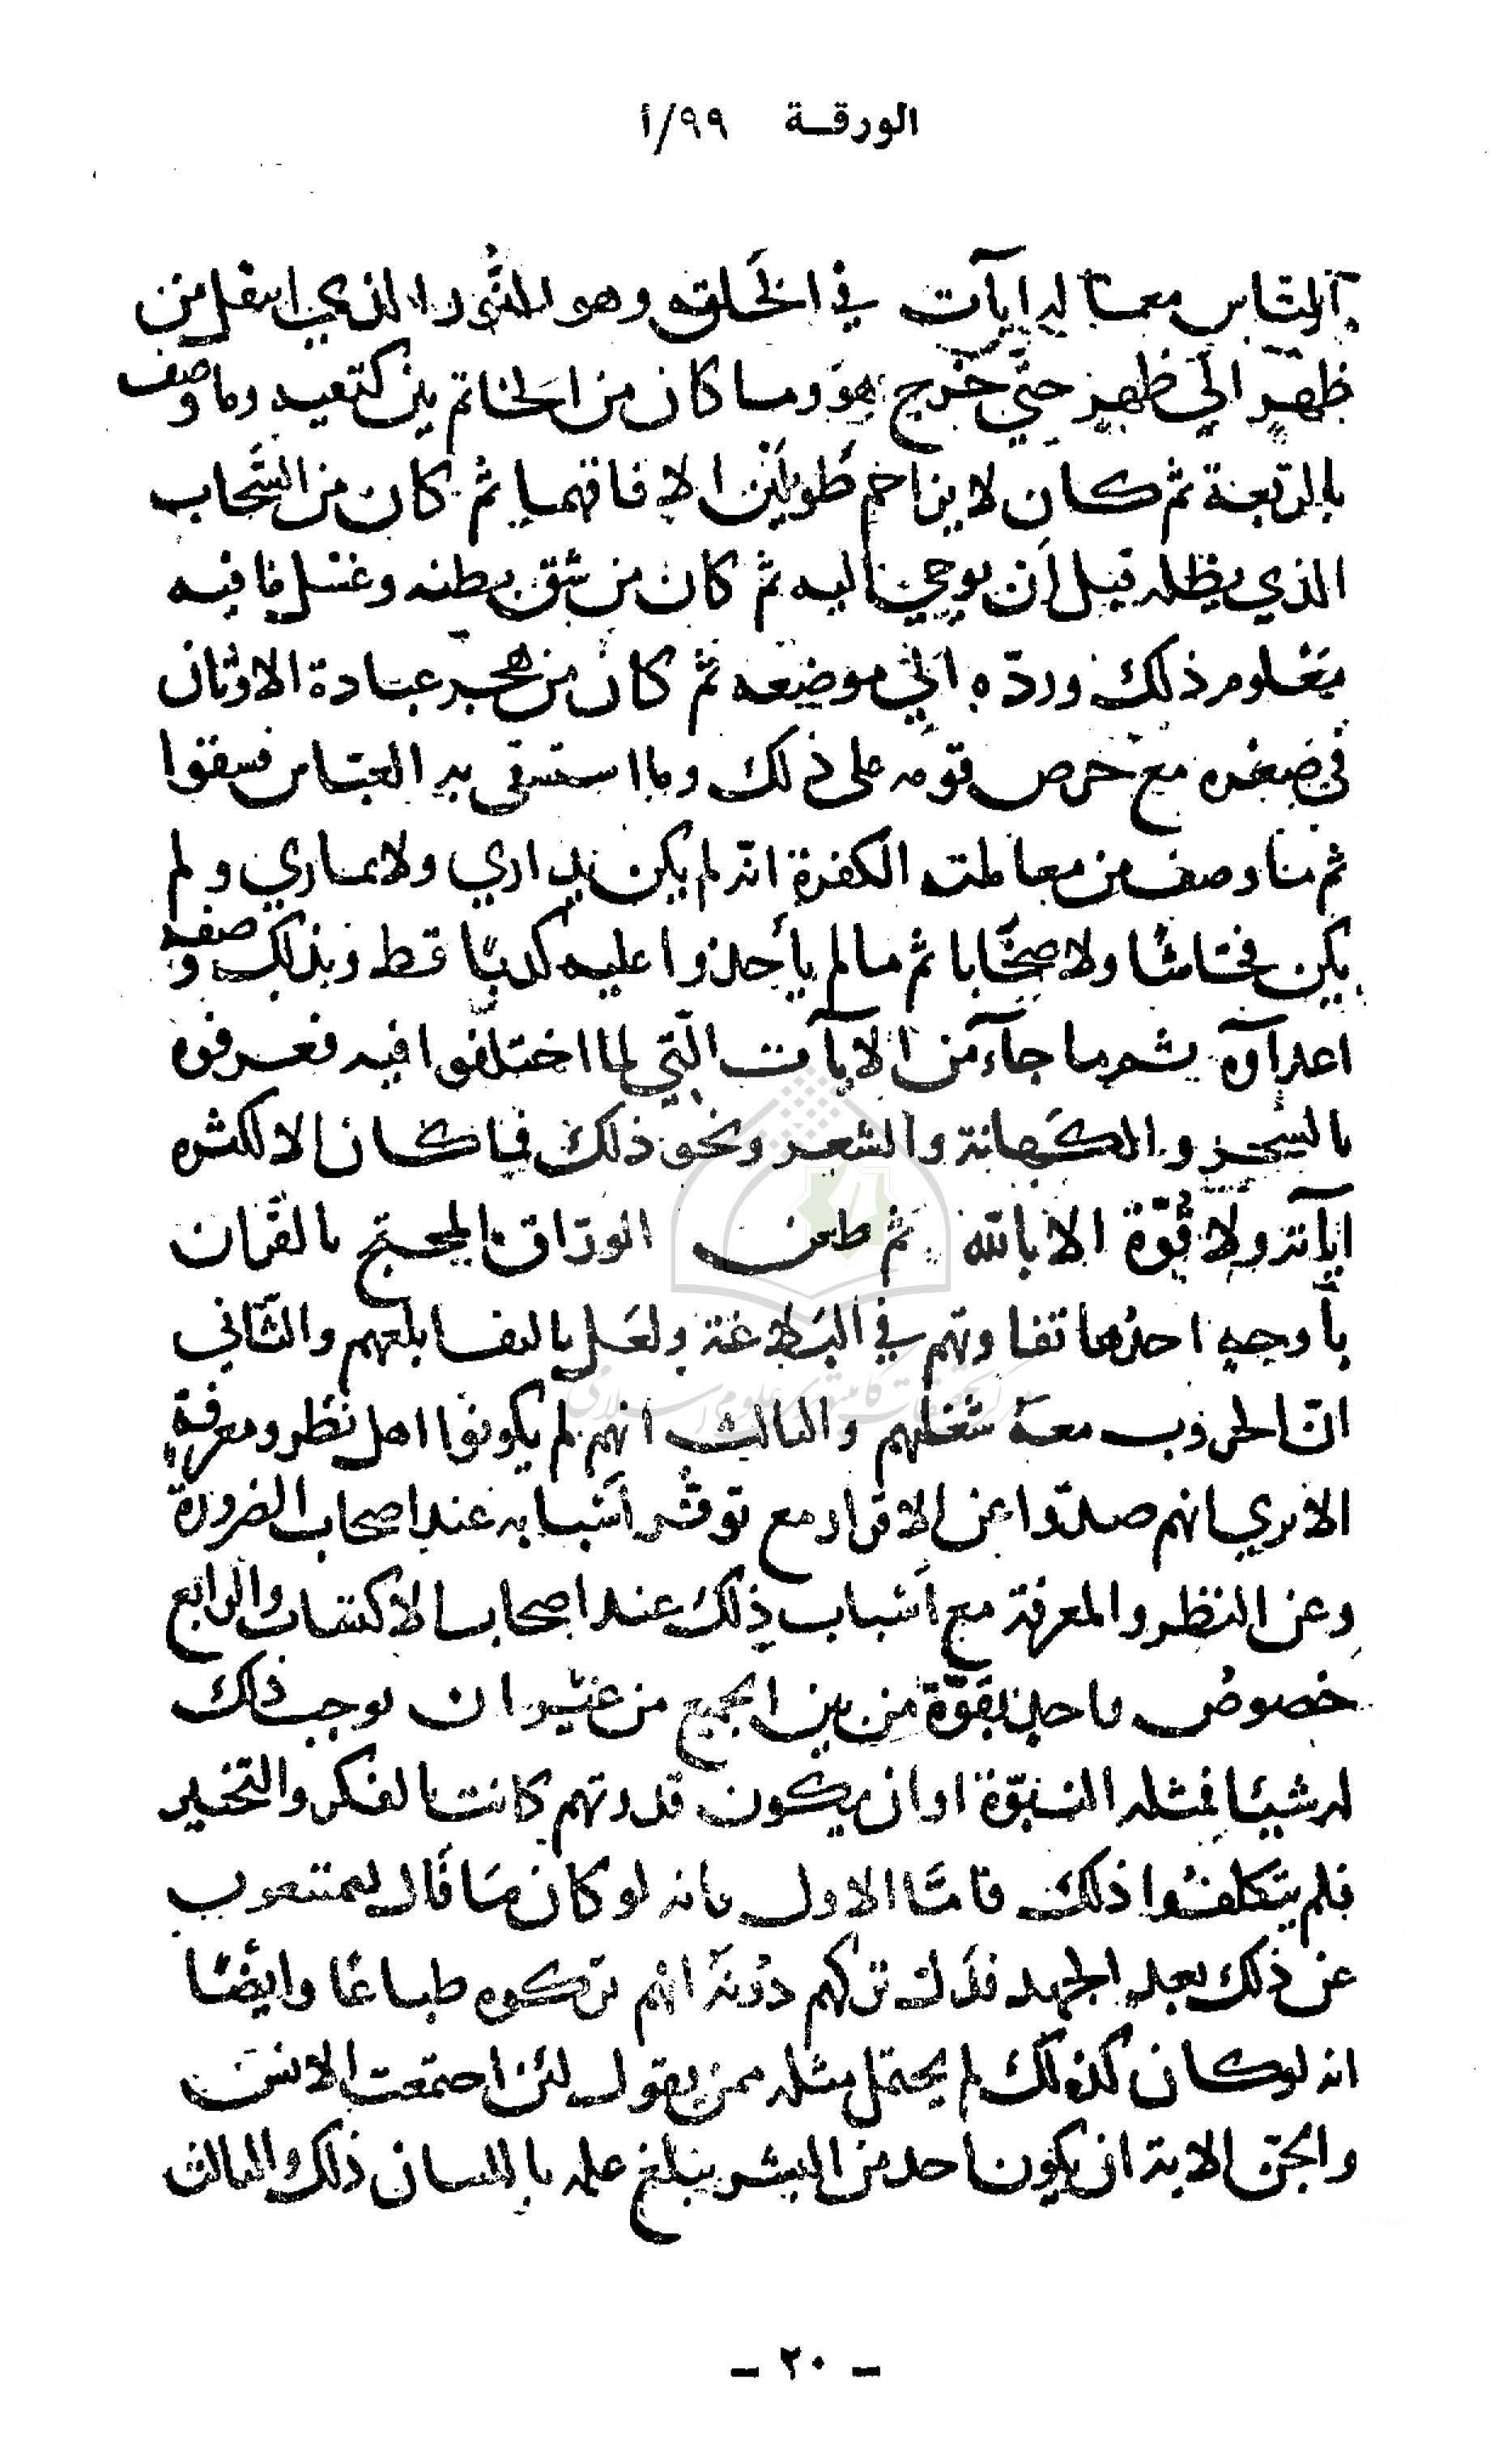 الورقة ٩٩/أ
الناس معما له ايآت في الخلقه وهو النور الذي انتقل من
ظهرٍ الى ظهرٍ حتى خرج هو وما كان من الخاتم بين كتفيه وما وصف
بالربعة ثم كان لا يزاحم طويلين الا فاقهما ثم كان من السَّحاب
الذي يظله قبل ان يوحى اليه ثم كان من شق بطنه وغسل ما فيه
معلوم ذلك وردّه الى موضعه ثم كان من هجر عبادة الاوثان
في صغره مع حرص قومه على ذلك وما استسقى به العباس فسقوا
ثم ما وصف من معاملته الكفرة انّه لم يكن يداري ولا يماري ولم
يكن فحاشا ولا صخّابا ثم ما لم يأخذوا عليه كذبًا قط وبذلك وصفه
اعدآؤه ثم ما جآء من الآيآت الّتي لما اختلفوا فيه فعرفوه
بالسحر والكهانة والشعر ونحو ذلك فما كان الا لكثره
ايآته ولا قُوّة الا بالله ثم طعن الورّاق المحتج بالقران
بأوجهٍ احدُها تفاوتهم في البَلاغة ولعَل بالتفا بلغهم والثّاني
انّ الحروب معه شغلهم والثالث انهم لم يكونوا اهل نظر ومعرفةٍ
الا ترى انهم صدّوا عن الاقرار مع توفُّر أسبابه عند اصحاب الضرورة
وعن النظر والمعرفة مع أسباب ذلك عند اصحاب الاكتساب والرابع
خصوص واحدٍ بقوّة من بين الجميع من غير ان يوجب ذلك
له شيئا فمثله النبوّة او ان يكون قدرتهم كانت بالفكر والتخير
فلم يتكلفُوا ذلك فامّا الاول فانه لو كان مَا قال ليمتنعوب
عن ذلك بعد الجهد فدلّ تركهم دُونَه انهم تركوه طباعًا وايضًا
انه لو كان كذلك لم يحتمل مثله ممن يقول لئن اجتمعت الانس
والجن الاية ان يكون احد من البشر يبلغ علمه باللسان ذلك والثالث
- ٢٠ -